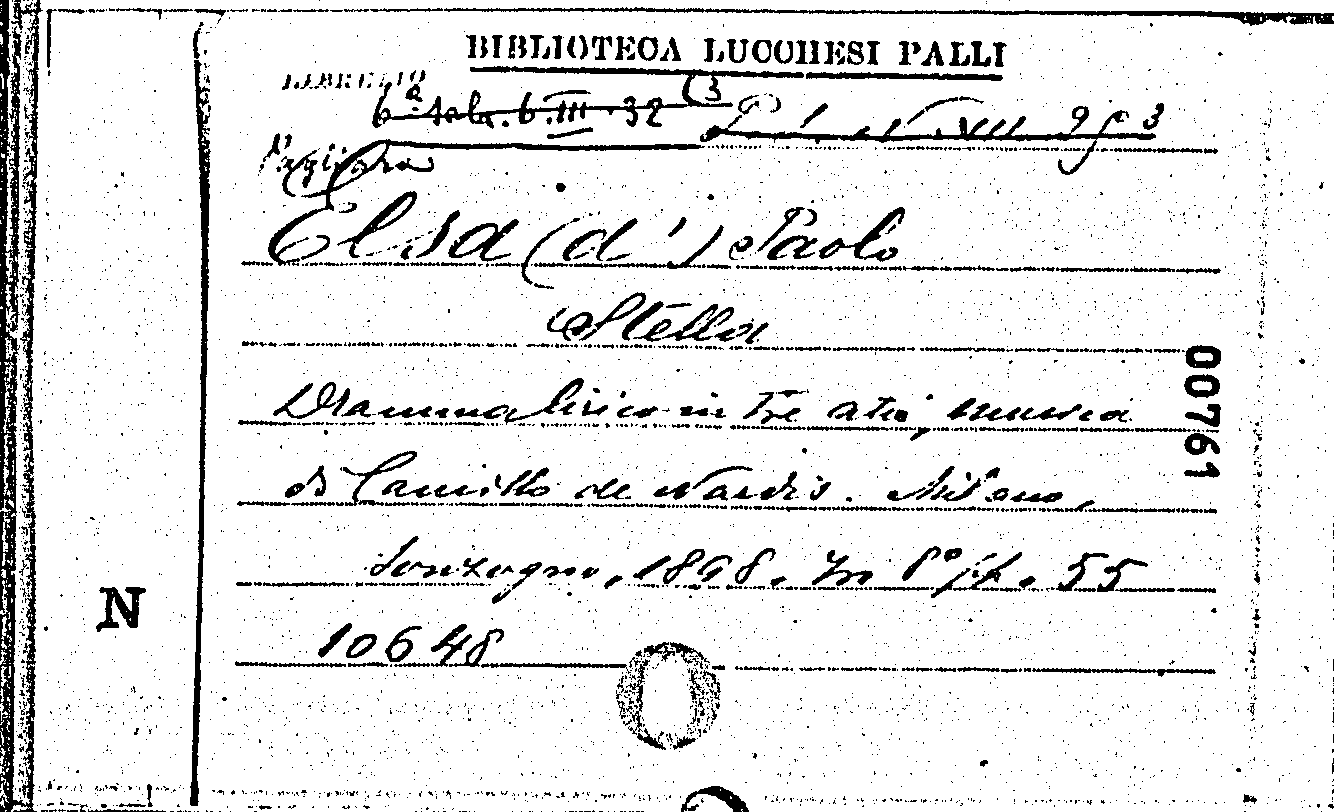 BIBLIOTECA LUCCHESI PALLI
LIBRETTO
6ª sala. 6.III.32 (3
N. XII 953
Elsa (d') Paolo
Stella
Dramma lirico in tre atti, musica
di Camillo de Nardis. Milano,
Sonzogno, 1898. In 8º pp. 55
10648
00761
N